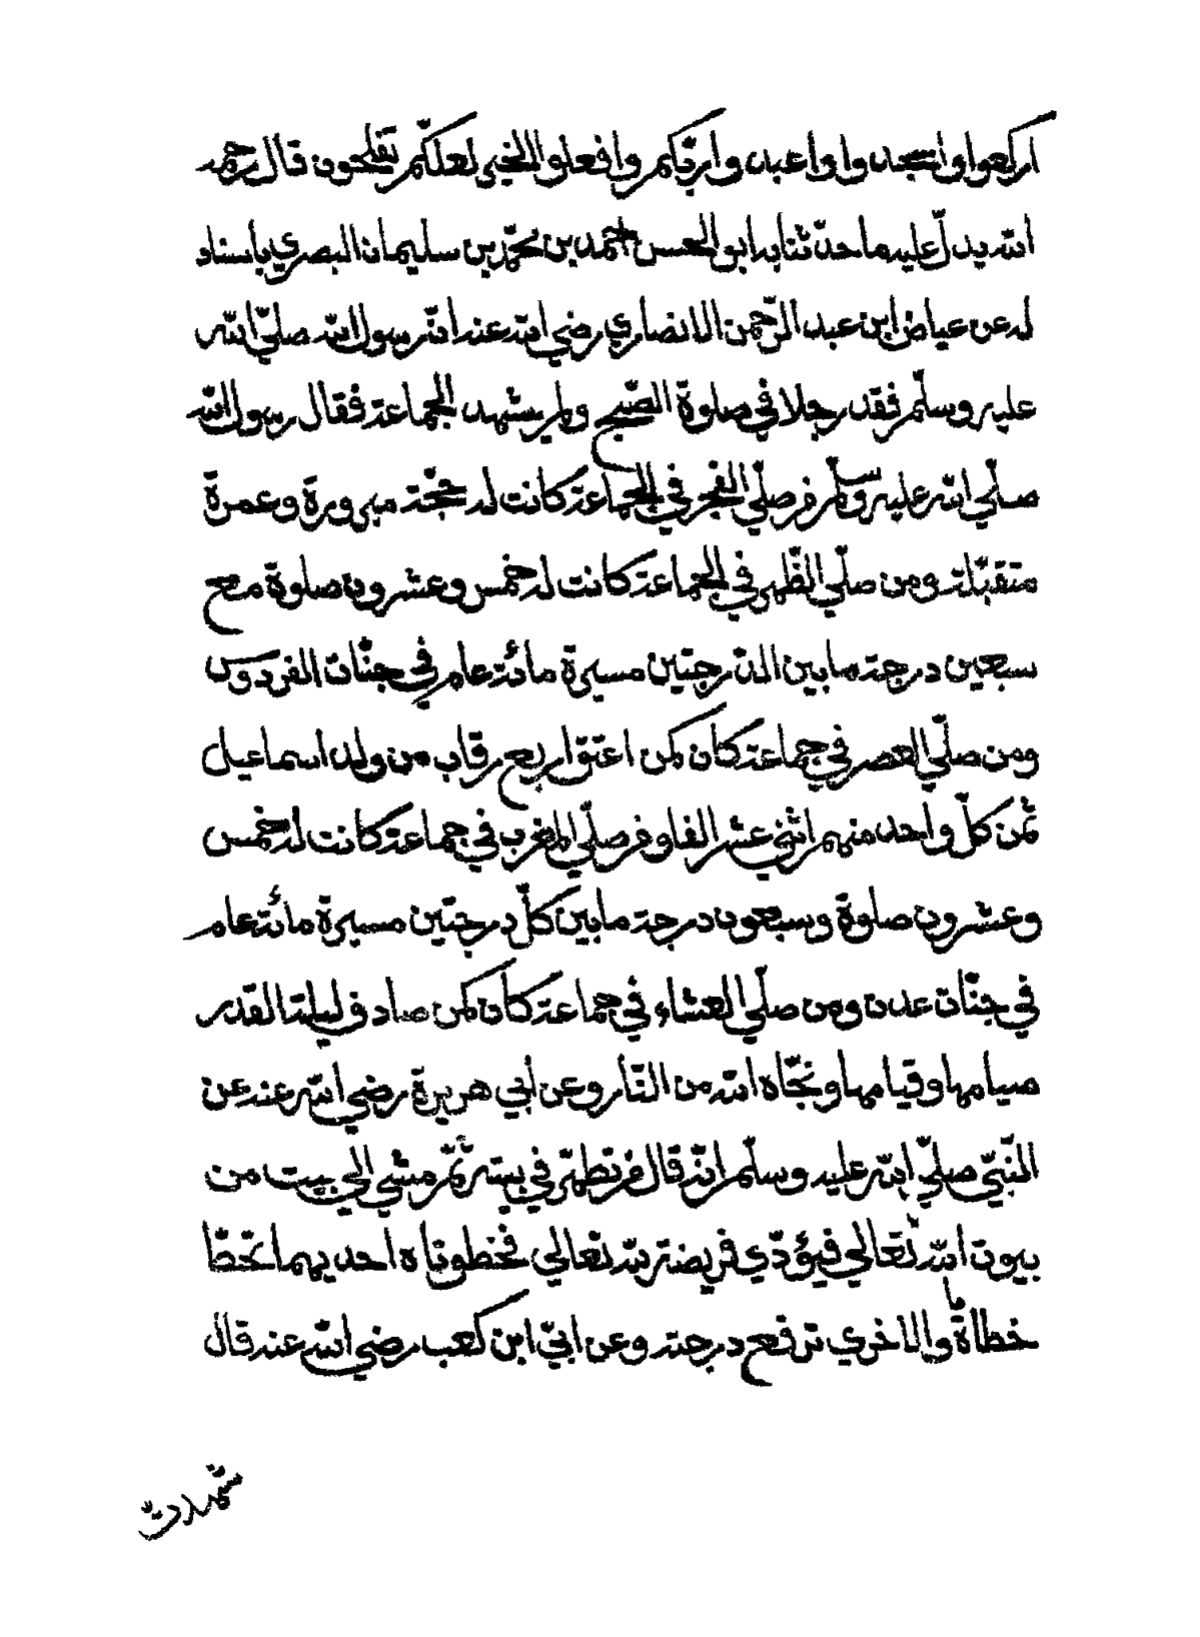 اركعوا واسجدوا واعبدوا ربّكم وافعلوا الخير لعلكّم تفلحون قال رحمه
الله يدلّ عليه ما حدّثنا به ابو الحسن احمد بن محمّد بن سليمان البصري بأسناد
له عن عياض ابن عبد الرّحمن الانصاري رضي الله عنه انّ رسول الله صليّ الله
عليه وسلّم فقد رجلا في صلوة الصّبح ولم يشهد الجماعة فقال رسول الله
صلّي الله عليه وسلّم من صلّي الفجر في الجماعة كانت له حجّة مبرورة وعمرة
متقبّلة ومن صلّي الظّهر في الجماعة كانت له خمس وعشرون صلوة مع
سبعين درجة ما بين الدّرجتين مسيرة مائة عام في جنّات الفردوس
ومن صلّي العصر في جماعة كان كمن اعتق اربع رقاب من ولد اسماعيل
ثمن كلّ واحد منهم اثني عشر الفا ومن صلّي المغرب في جماعة كانت له خمس
وعشرون صلوة وسبعون درجة ما بين كلّ درجتين مسيرة مائة عام
في جنّات عدن ومن صلّي العشاء في جماعة كان كمن صادف ليلة القدر
صيامها وقيامها ونجّاه الله من النّار وعن أبي هريرة رضي الله عنه عن
النّبيّ صليّ الله عليه وسلّم انّه قال من تطهّر في بيته ثمّ مشي الي بيت من
بيوت الله تعالي فيؤدّي فريضة لله تعالي فخطوتاه احديهما تحطّ
خطاة والاخري ترفع درجة وعن ابيّ ابن كعب رضي الله عنه قال